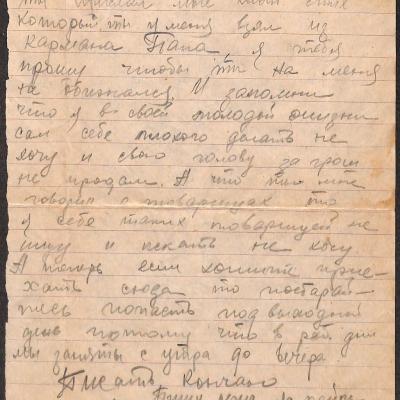 ты прислал мне
который ты у меня взял из
кармана Папа, я тебя
прошу чтобы ты на меня
не обижался. И запомни
что я в своей молодой жизни
сам себе плохого делать не
хочу и свою голову за грош
не продам. А что ты мне
говорил о товарищах то
я себе таких товарищей не
ищу и искать не хочу
А теперь если хотите прие-
хать сюда то постарай-
тесь попасть под выходной
день потому что в раб дни
мы заняты с утра до вечера.
Писать кончаю
Пишу